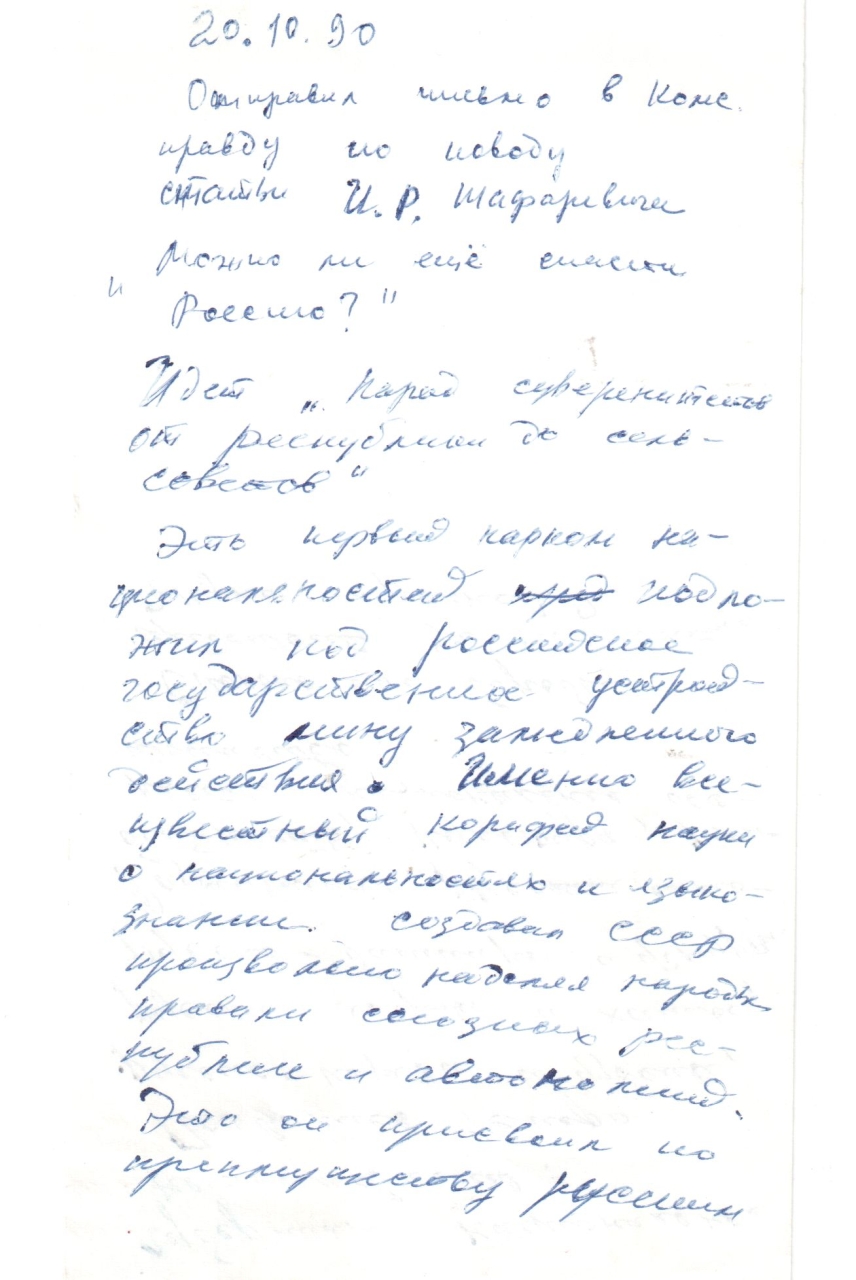 20.10.90
Отправил письмо в Комс.
правду по поводу
статьи И.Р. Шафаревича
" Можно ли ещё спасти
Россию?"
Идет „Парад суверенитетов
от республики до сель-
советов"
Это первый нарком на-
циональностей подло-
жил под российское
государственное устрой-
ство мину замедленного
действия. Именно все-
известный корифей науки
о национальностях и языко-
знании создавал СССР
произвольно наделяя народы
правами союзных рес-
публик и автономий.
Это он присвоил по
преимуществу русским